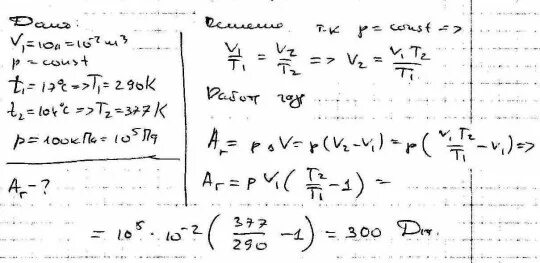 Дано:
V₁=10л=10⁻²м³
p=const
t₁=17°C=>T₁=290K
t₂=104°C=>T₂=377K
p=100кПа=10⁵Па
Aг-?
Решение т.к p=const=>
V₁/T₁ = V₂/T₂ => V₂ = V₁T₂/T₁
Работа газа
Aг = pΔV=p(V₂-V₁)=p(V₁T₂/T₁-V₁)=>
Aг=pV₁(T₂/T₁-1)=
=10⁵·10⁻²(377/290-1)=300 Дж.